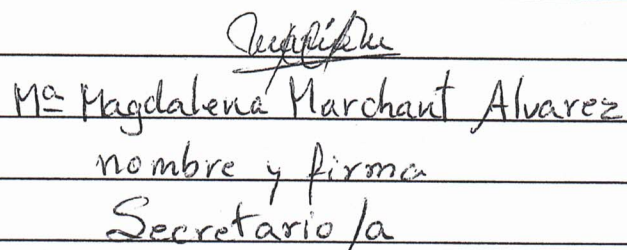 Mª Magdalena Marchant Alvarez
nombre y firma
Secretario/a